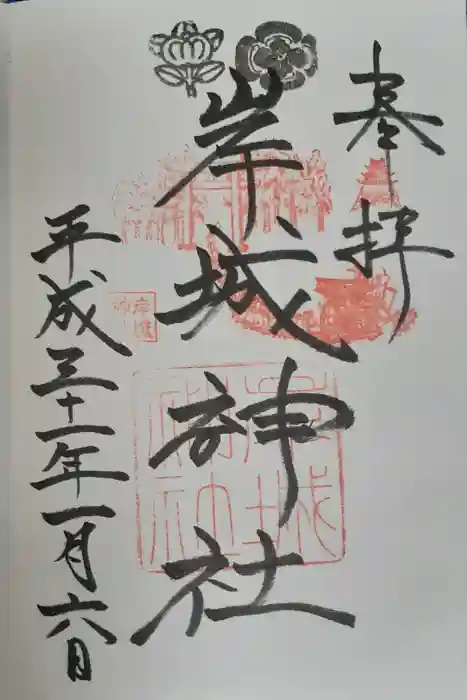 奉拝
岸城神社
平成三十一年一月六日